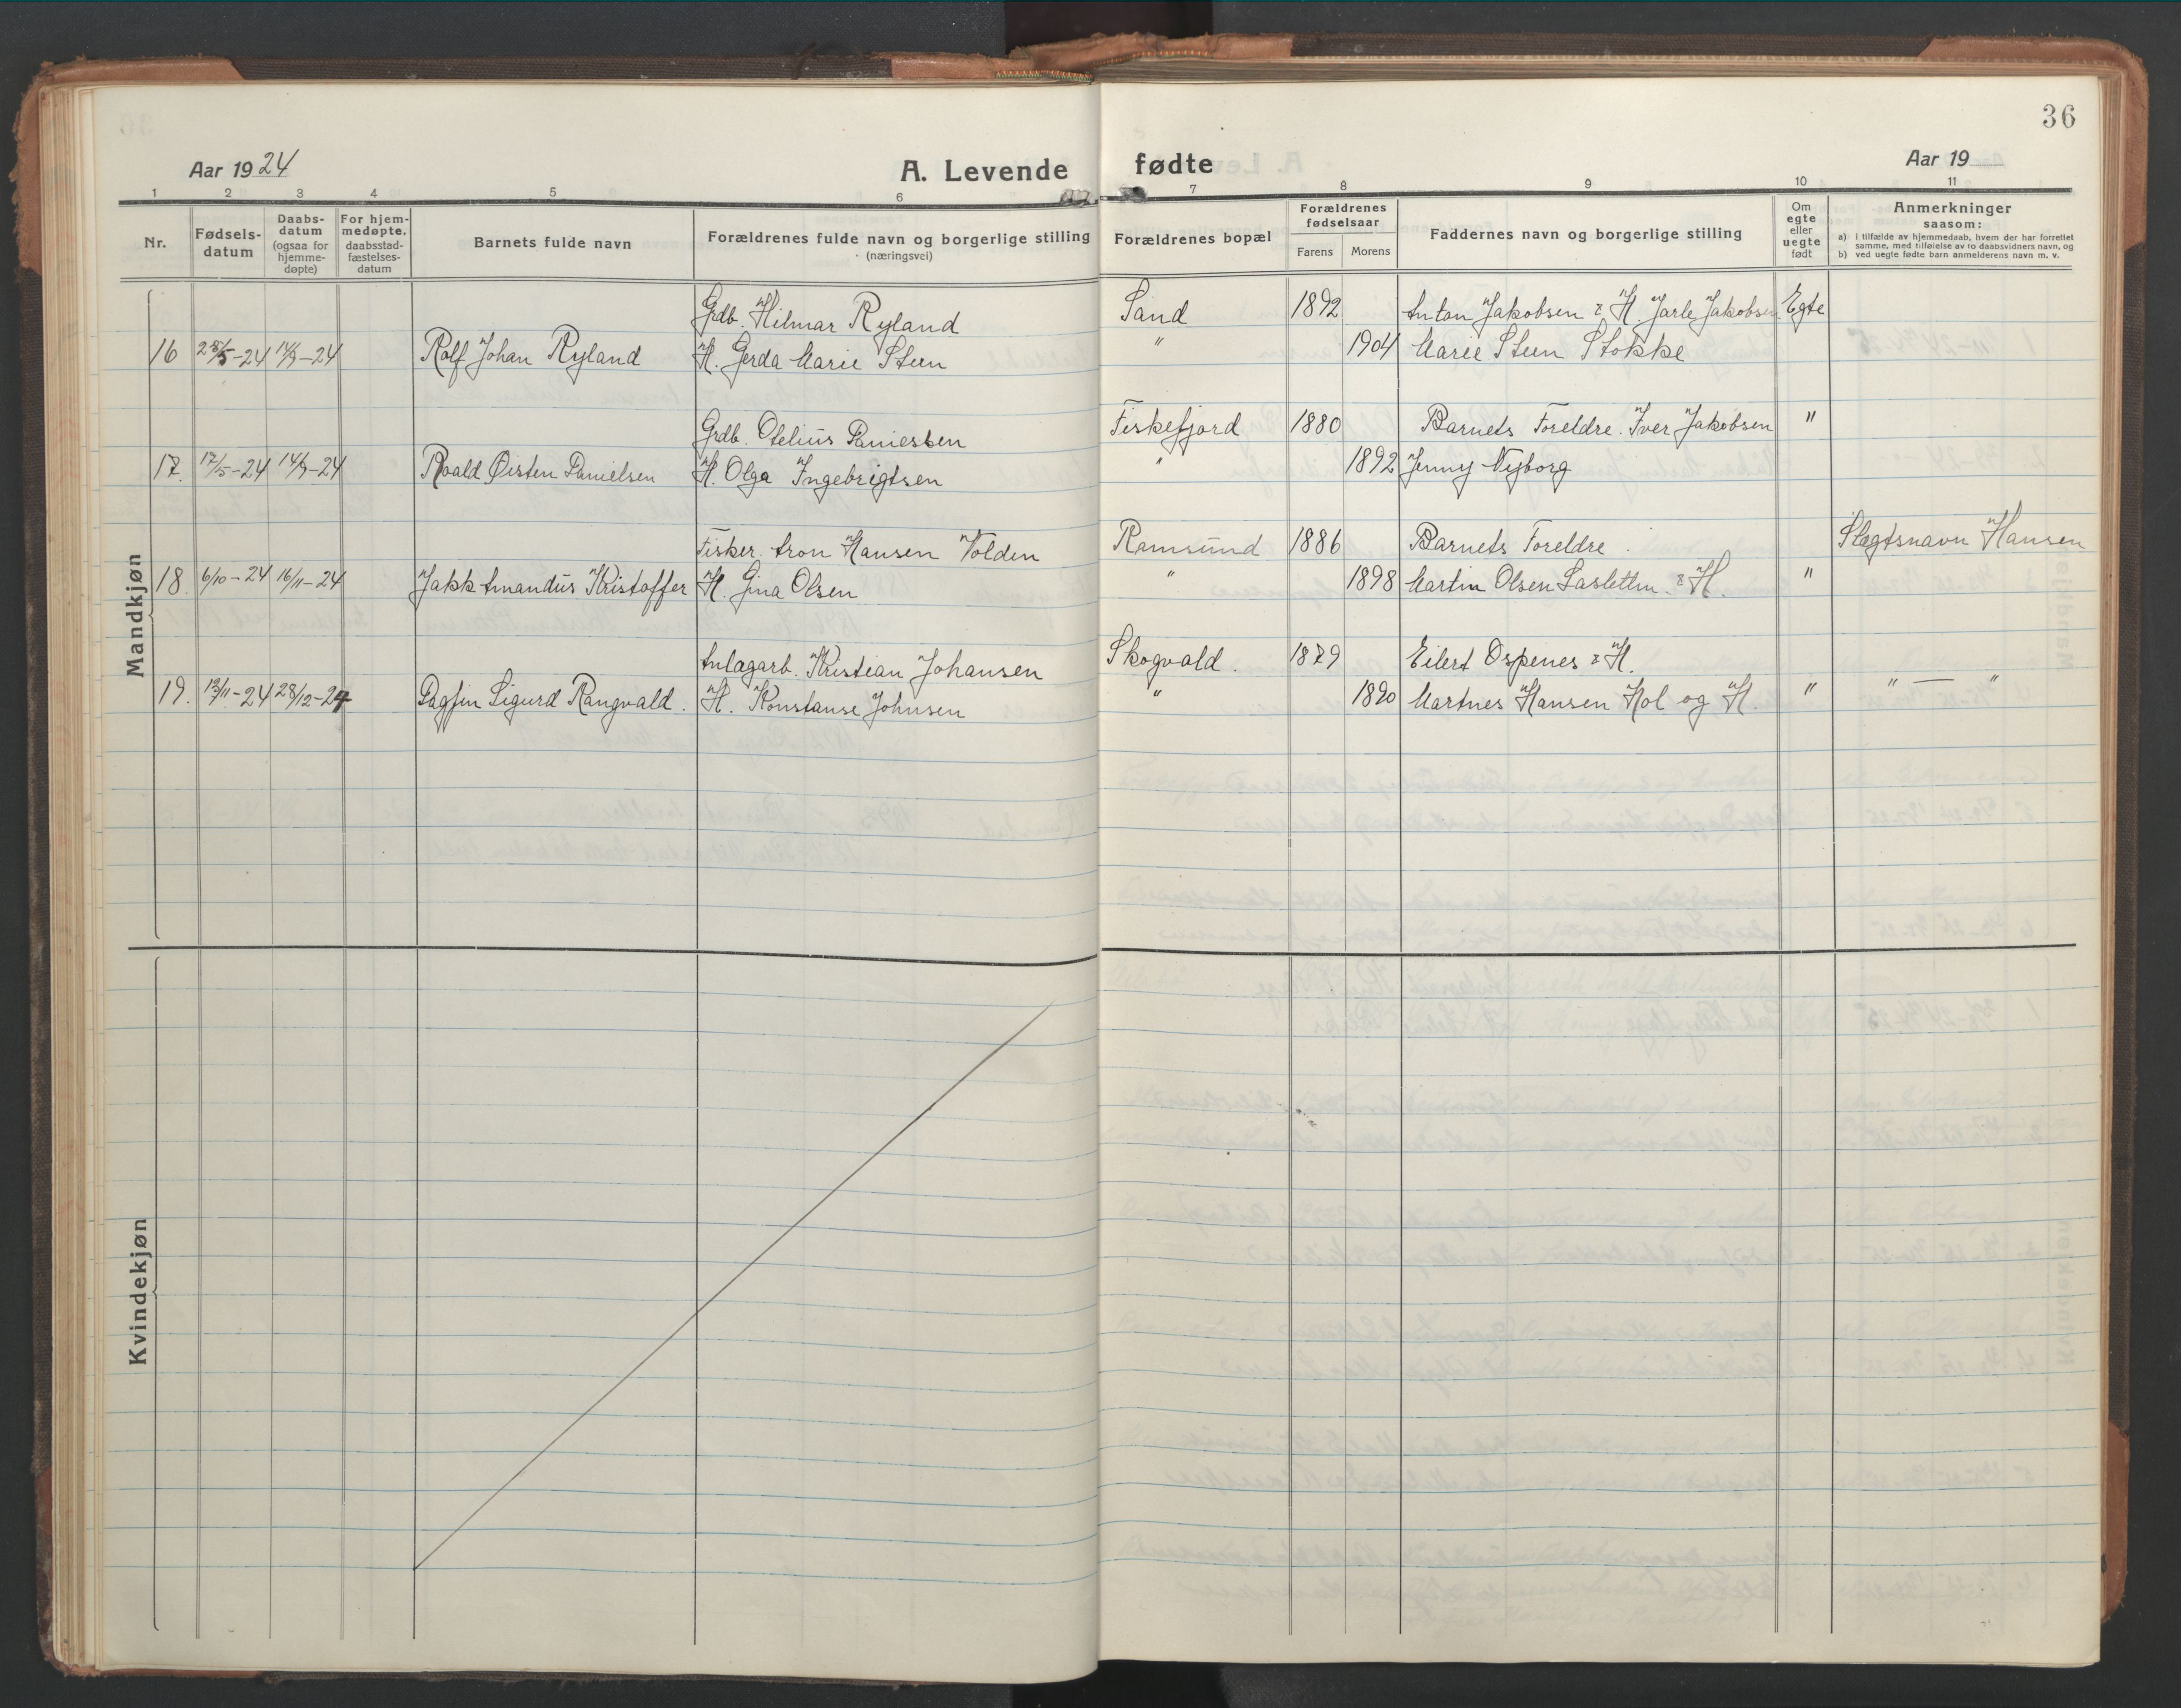 36
Aar 1924
A. Levende fødte
Aar 19
1 2 3 4 5 6 7 8 9 10 11
Nr.
Fødsels-
datum
Daabs-
datum
(ogsaa for
hjemme-
døpte)
For hjem-
medøpte.
daabsstad-
fæstelses-
datum
Barnets fulde navn
Forældrenes fulde navn og borgerlige stilling
(næringsvei)
Forældrenes bopæl
Forældrenes
fødselsaar
Farens Morens
Faddernes navn og borgerlige stilling
Om
egte
eller
uegte
født
Anmerkninger
saasom:
a) i tilfælde av hjemmedaab, hvem der har forrettet
samme, med tilføielse av to daabsvidners navn, og
b) ved uegte fødte barn anmelderens navn m. v.
Mandkjøn
Grdb. Hilmar Ryland Sand 1892 Anton Jakobsen & H. Jarle Jakobsen Egte
16 25/5-24 14/9-24 Rolf Johan Ryland H. Gerda Marie Steen " 1904 Marie Steen Stokke
Grdb. Otelius Danielsen Fiskefjord 1880 Barnets Foreldre. Iver Jakobsen "
17. 17/5-24 14/9-24 Roald Øisten Danielsen H. Olga Ingebrigtsen " 1892 Jenny Nyborg
Fisker. Aron Hansen Volden Ramsund 1886 Barnets Foreldre. Slegtsnavn Hansen
18. 6/10-24 16/11-24 Jakk Amandus Kristoffer H. Gina Olsen " 1898 Martin Olsen & H. "
Anlægarb. Kristian Johansen Skogvold. 1879 Eilert Ospenes & H.
19. 12/11-24 28/12-24 Dagfin Sigurd Rangvald. H. Konstanse Johnsen " 1890 Martnes Hansen Hol og H. " " — "
Kvindekjøn